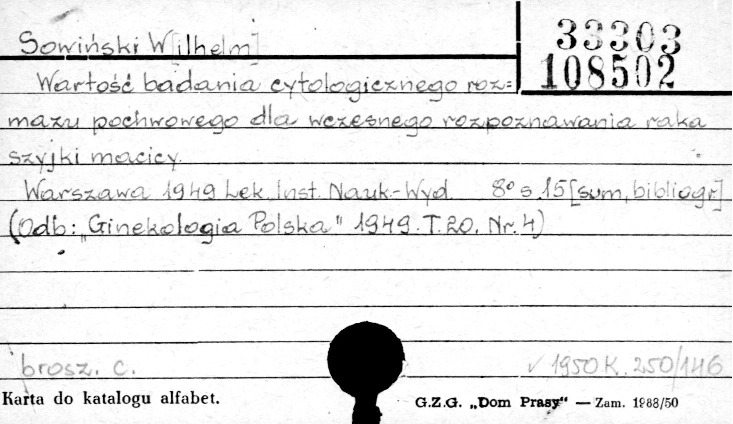 33303
Sowiński W[ilhelm]
108502
Wartość badania cytologicznego roz=
mazu pochwowego dla wczesnego rozpoznawania raka
szyjki macicy.
Warszawa 1949 Lek. Inst. Nauk-Wyd. 8° s. 15 [sum, bibliogr]
(Odb: „Ginekologia Polska" 1949. T. 20. Nr. 4)
brosz. c. √ 1950 K. 250/146
Karta do katalogu alfabet. G.Z.G. „Dom Prasy“ — Zam. 1988/50